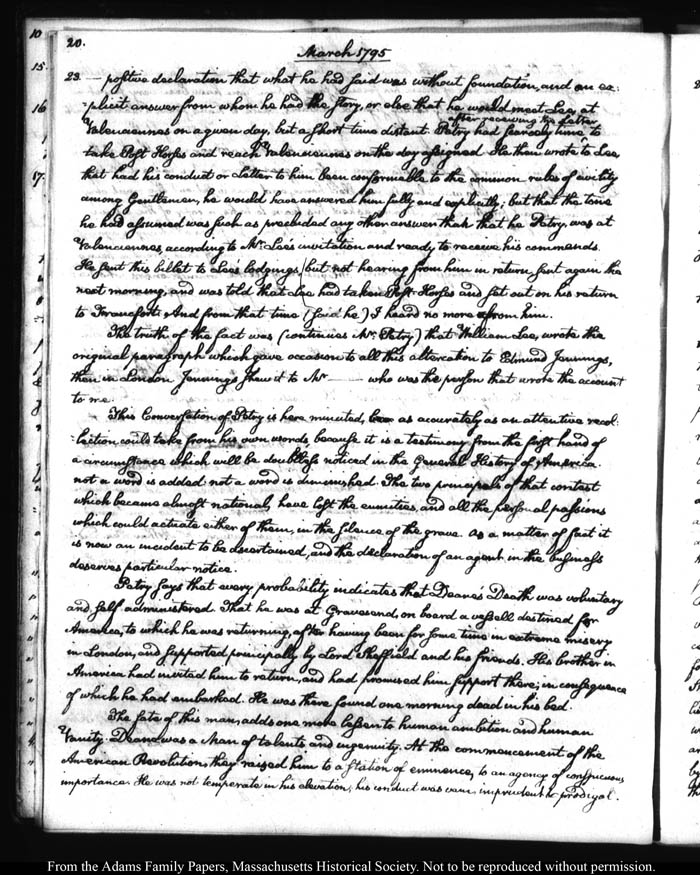 20.
March 1795
10
15.
16
17.
23. — positive declaration that what he had said was without foundation, and an ex:
:plicit answer from whom he had the story, or else that he would meet Lee, at
after receiving the Letter
Valenciennes on a given day, but a short time distant. Petry had scarcely time to
take Post Horses and reach Valenciennes on the day assigned. He then wrote to Lee,
that had his conduct or Letter to him been conformable to the common rules of civility
among Gentlemen, he would have answered him fully and explicitly; but that the tone
he had assumed was such as precluded any other answer than that he Petry, was at
Valenciennes, according to Mr. Lee's invitation and ready to receive his commands.
He sent this billet to Lee's lodgings, but not hearing from him in return, sent again the
next morning, and was told that Lee had taken Post-Horses and set out on his return
to Francfort. And from that time (said he) I heard no more from him.
The truth of the fact was (continues Mr. Petry) that William Lee, wrote the
original paragraph which gave occasion to all this altercation to Edmund Jennings,
then in London. Jennings shew'd it to Mr. —— who was the person that wrote the account
to me.
This Conversation of Petry is here minuted, as accurately as an attentive recol:
:lection could take from his own words, because it is a testimony from the first hand of
a circumstance which will be doubtless noticed in the General History of America.
not a word is added not a word is diminished. The two principals of that contest
which became almost national, have lost the enmities, and all the personal passions
which could actuate either of them, in the silence of the grave. As a matter of fact it
is now an incident to be ascertained, and the declaration of an agent in the business
deserves particular notice.
Petry says that every probability indicates that Deane's Death was voluntary
and self administered. That he was at Gravesend, on board a vessell destined for
America, to which he was returning, after having been for some time in extreme misery
in London, and supported principally by Lord Sheffield and his friends. His brother in
America had invited him to return, and had promised him support there; in consequence
of which he had embarked. He was there found one morning dead in his bed.
The fate of this man, adds one more lesson to human ambition and human
Vanity. Deane was a Man of talents and ingenuity. At the commencement of the
American Revolution, they raised him to a station of eminence, to an agency of conspicuous
importance. He was not temperate in his elevation; his conduct was vain, imprudent & prodigal.
From the Adams Family Papers, Massachusetts Historical Society. Not to be reproduced without permission.